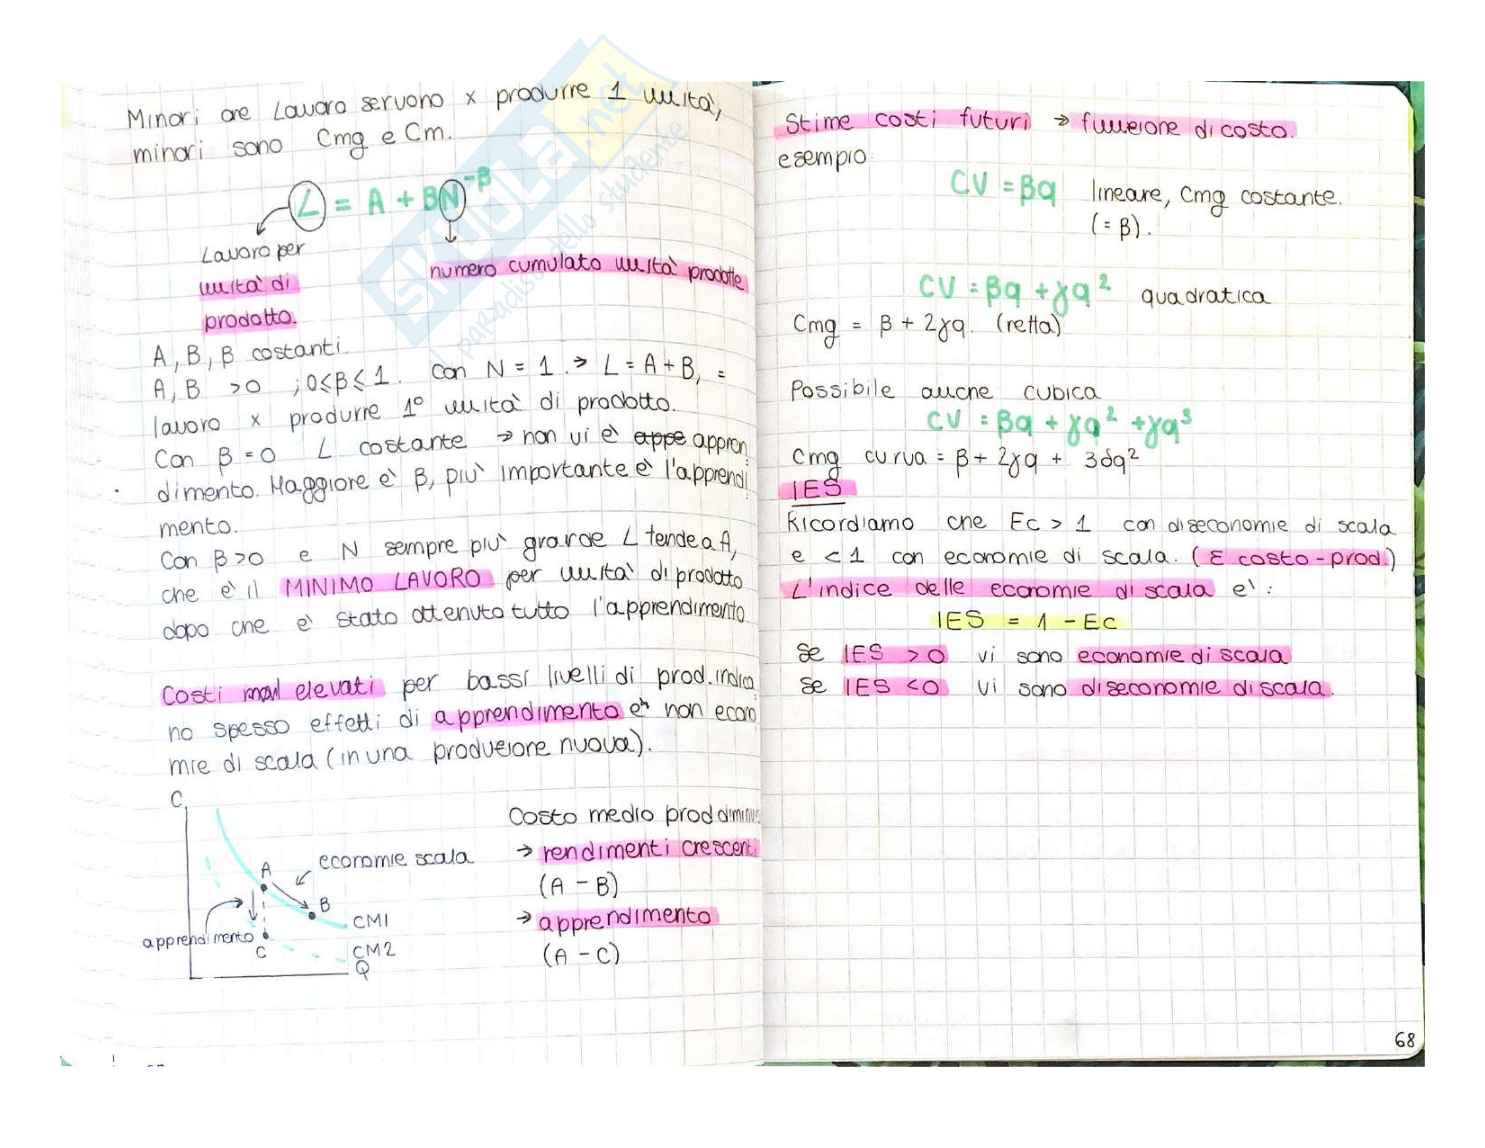 Minori ore Lavoro servono x produrre 1 unità,
minori sono Cmg e Cm.
L = A + BN^-β
Lavoro per
unità di
prodotto.
numero cumulato unità prodotte
A, B, β costanti.
A, B >0 ; 0≤β≤1. Con N = 1 → L = A + B, =
lavoro x produrre 1° unità di prodotto.
Con β=0 L costante → non vi è appe appren
dimento. Maggiore è β, più importante è l'apprendi
mento.
Con β>0 e N sempre più grande L tende a A,
che è il MINIMO LAVORO per unità di prodotto
dopo che è stato ottenuto tutto l'apprendimento
Costi elevati per bassi livelli di prod. indica
no spesso effetti di apprendimento e non econo
mie di scala (in una produzione nuova).
C
economie scala
A
B
CM1
apprendimento
C
CM2
Q
Costo medio prod diminuisce
→ rendimenti crescenti
(A - B)
→ apprendimento
(A - C)
Stime costi futuri → funzione di costo.
esempio
CV = βq lineare, Cmg costante.
(= β).
CV = βq + γq² quadratica
Cmg = β + 2γq. (retta)
Possibile anche cubica
CV = βq + γq² + γq³
Cmg curva = β + 2γq + 3δq²
IES
Ricordiamo che Ec > 1 con diseconomie di scala
e < 1 con economie di scala. (ε costo-prod.)
L'indice delle economie di scala è:
IES = 1 - Ec
Se IES > 0 vi sono economie di scala
Se IES < 0 vi sono diseconomie di scala.
68
SKUOLA.net
il paradiso dello studente